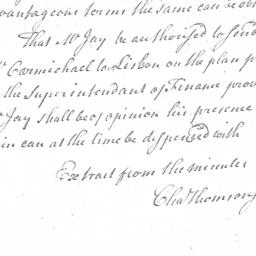 vantageous terms the same can be ob
That Mr Jay be authorised to send
Mr Carmichael to Lisbon on the plan p
the Superintendant of Finance prov
Mr Jay shall be of opinion his presence
in can at the time be dispensed with
Extract from the minutes
Chas Thomson